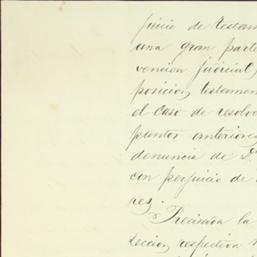 juicio de testam
una gran parte
vención judicial,
posicion testament
el caso de resolve
puntos anteriores
denuncia de
con perjuicio de
rez.
Precisada la
leccion, respectiva